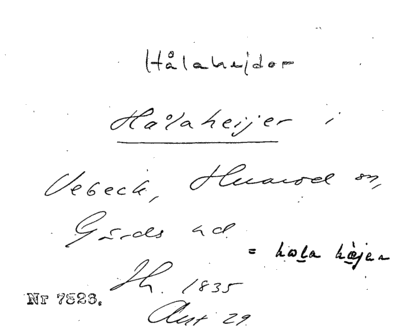 Hålahejdor
Hålaheijer i
Vebeck, Huarod sn,
Gärds hd
= hola häjen
Jh. 1835
Nr 7523.
Akt 29